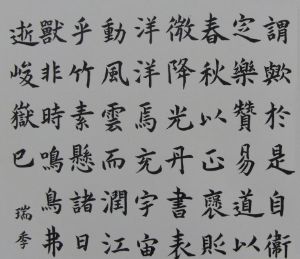 謂歟於是自衛
定樂贊易道以
春秋以正褒貶
微降光丹書表
洋洋焉充宇宙
動風雲而潤江
乎竹素懸諸日
獸非時鳴鳥弗
逝峻嶽巳
瑞季